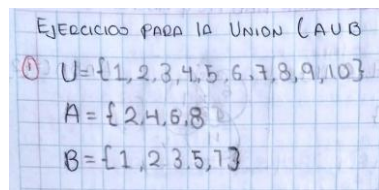 EJERCICIOS PARA LA UNION (AUB
① U={1,2,3,4,5,6,7,8,9,10}
A={2,4,6,8
B={1,2 3,5,7}